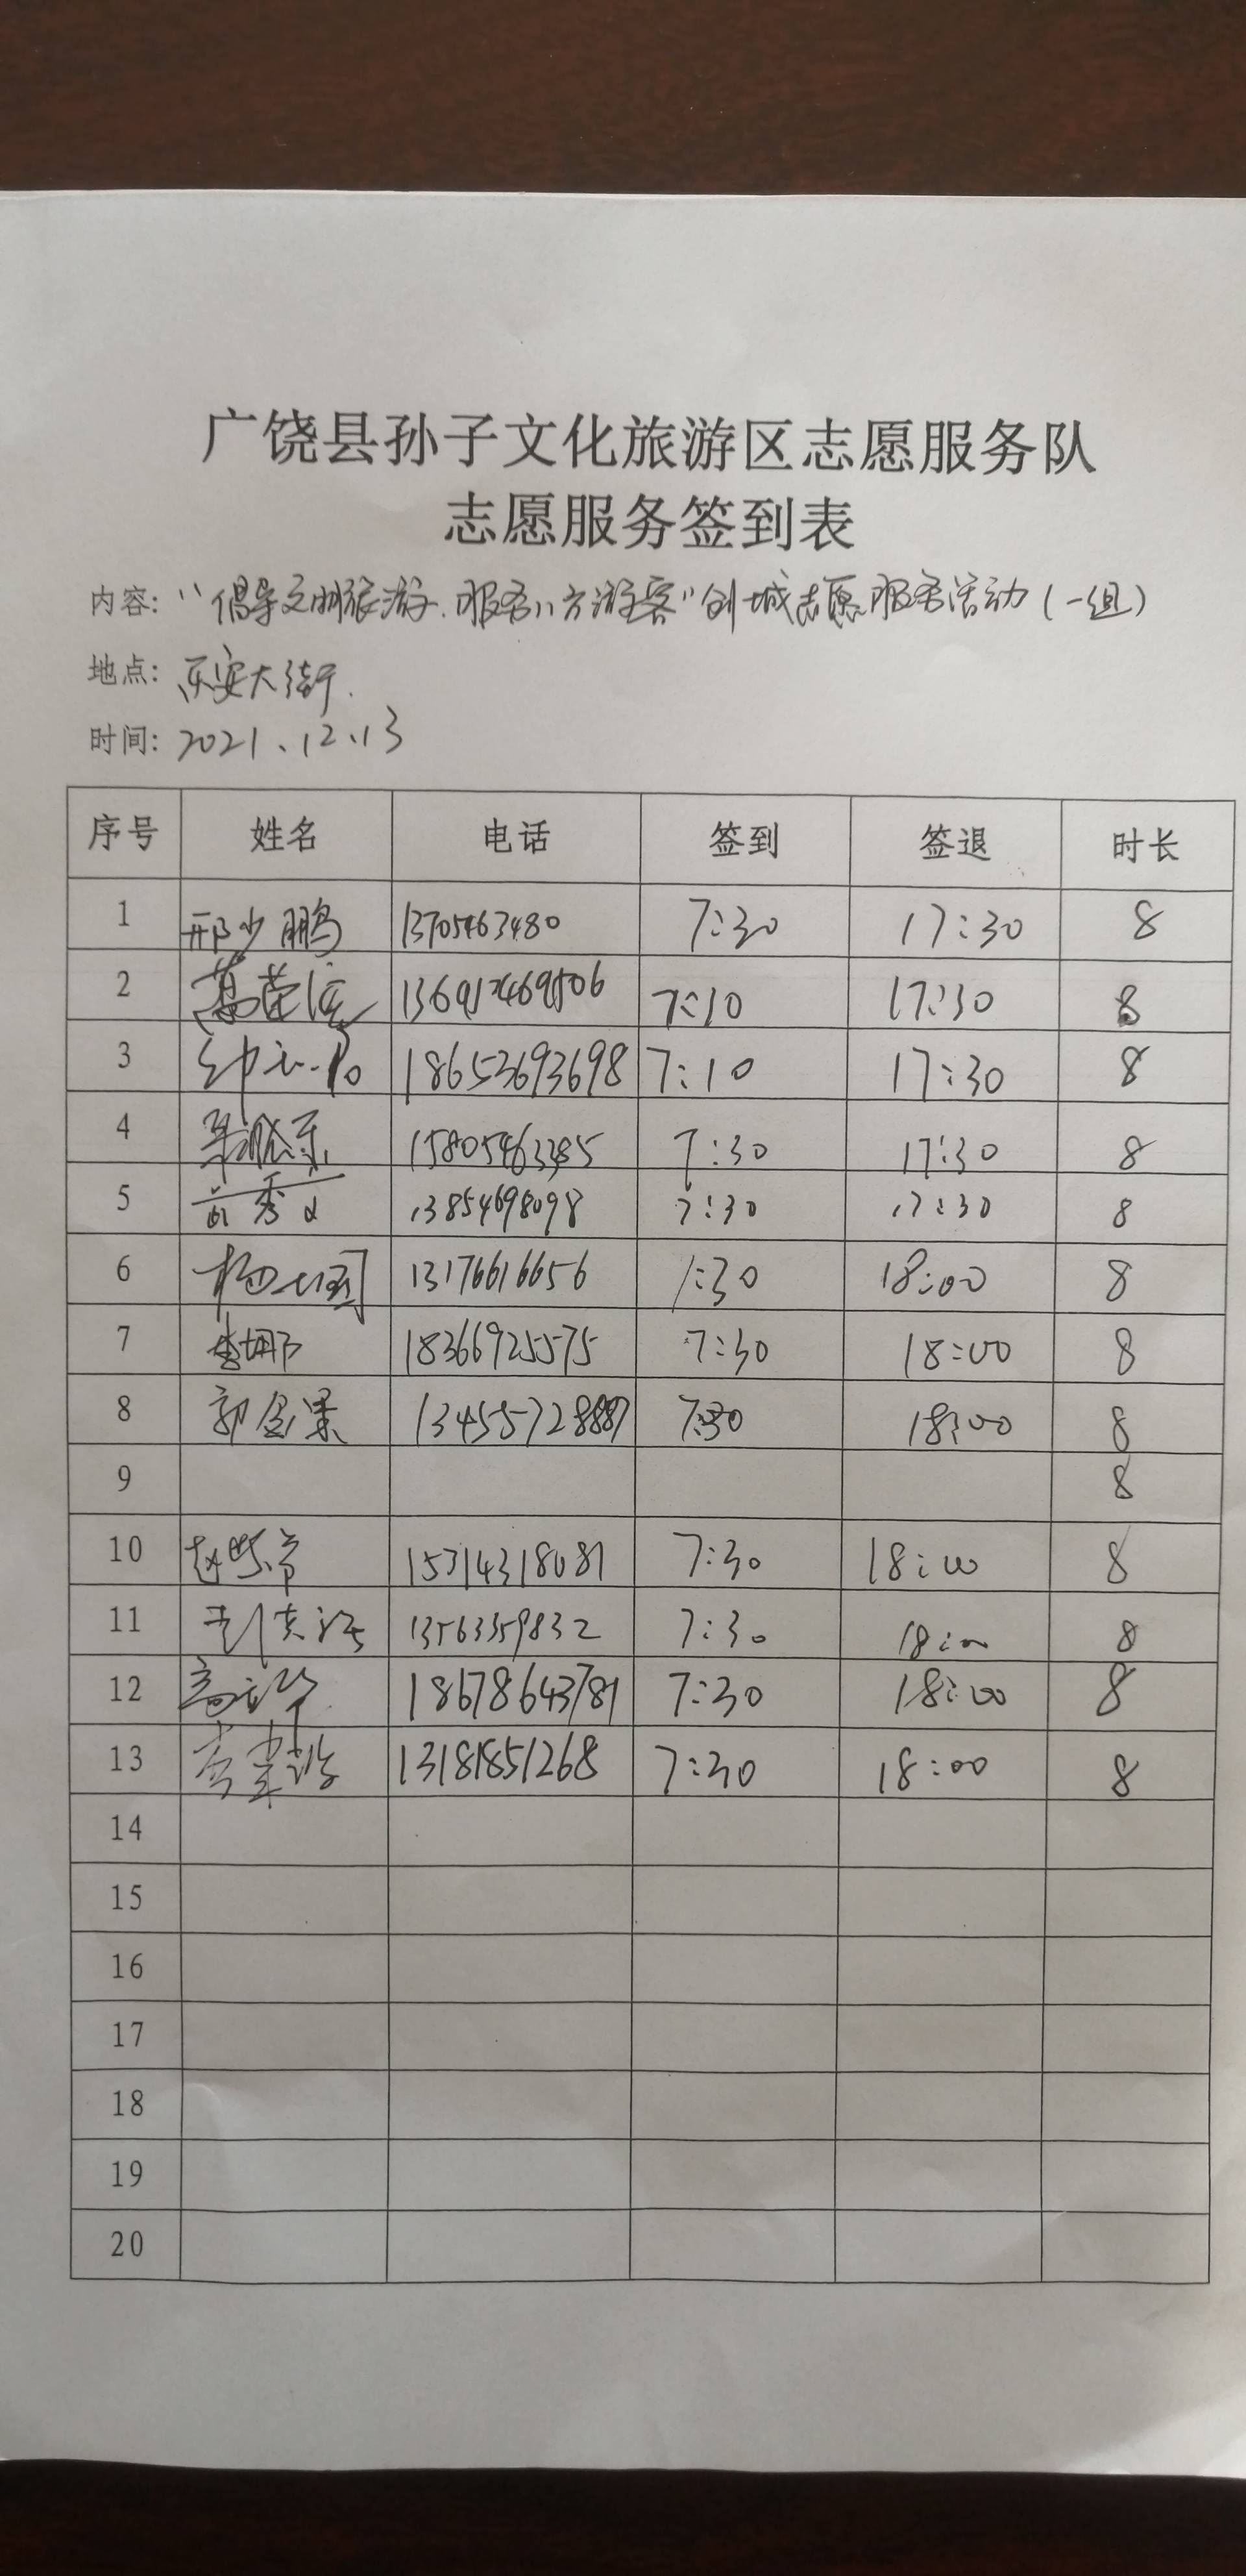 广饶县孙子文化旅游区志愿服务队
志愿服务签到表
内容:“倡导文明旅游.服务八方游客”创城志愿服务活动(一组)
地点:乐安大街.
时间:2021、12、13
序号 姓名 电话 签到 签退 时长
1 邢少鹏 13705463480 7:30 17:30 8
2 7:10 17:30 8
3 18653693698 7:10 17:30 8
4 15805463385 7:30 17:30 8
5 13854698098 7:30 17:30 8
6 13176616656 7:30 18:00 8
7 李娜 18366925575 7:30 18:00 8
8 郭金果 7:30 18:00 8
9 8
10 15314318081 7:30 18:00 8
11 13563359832 7:30 18:00 8
12 18678643781 7:30 18:00 8
13 13181851268 7:30 18:00 8
14
15
16
17
18
19
20